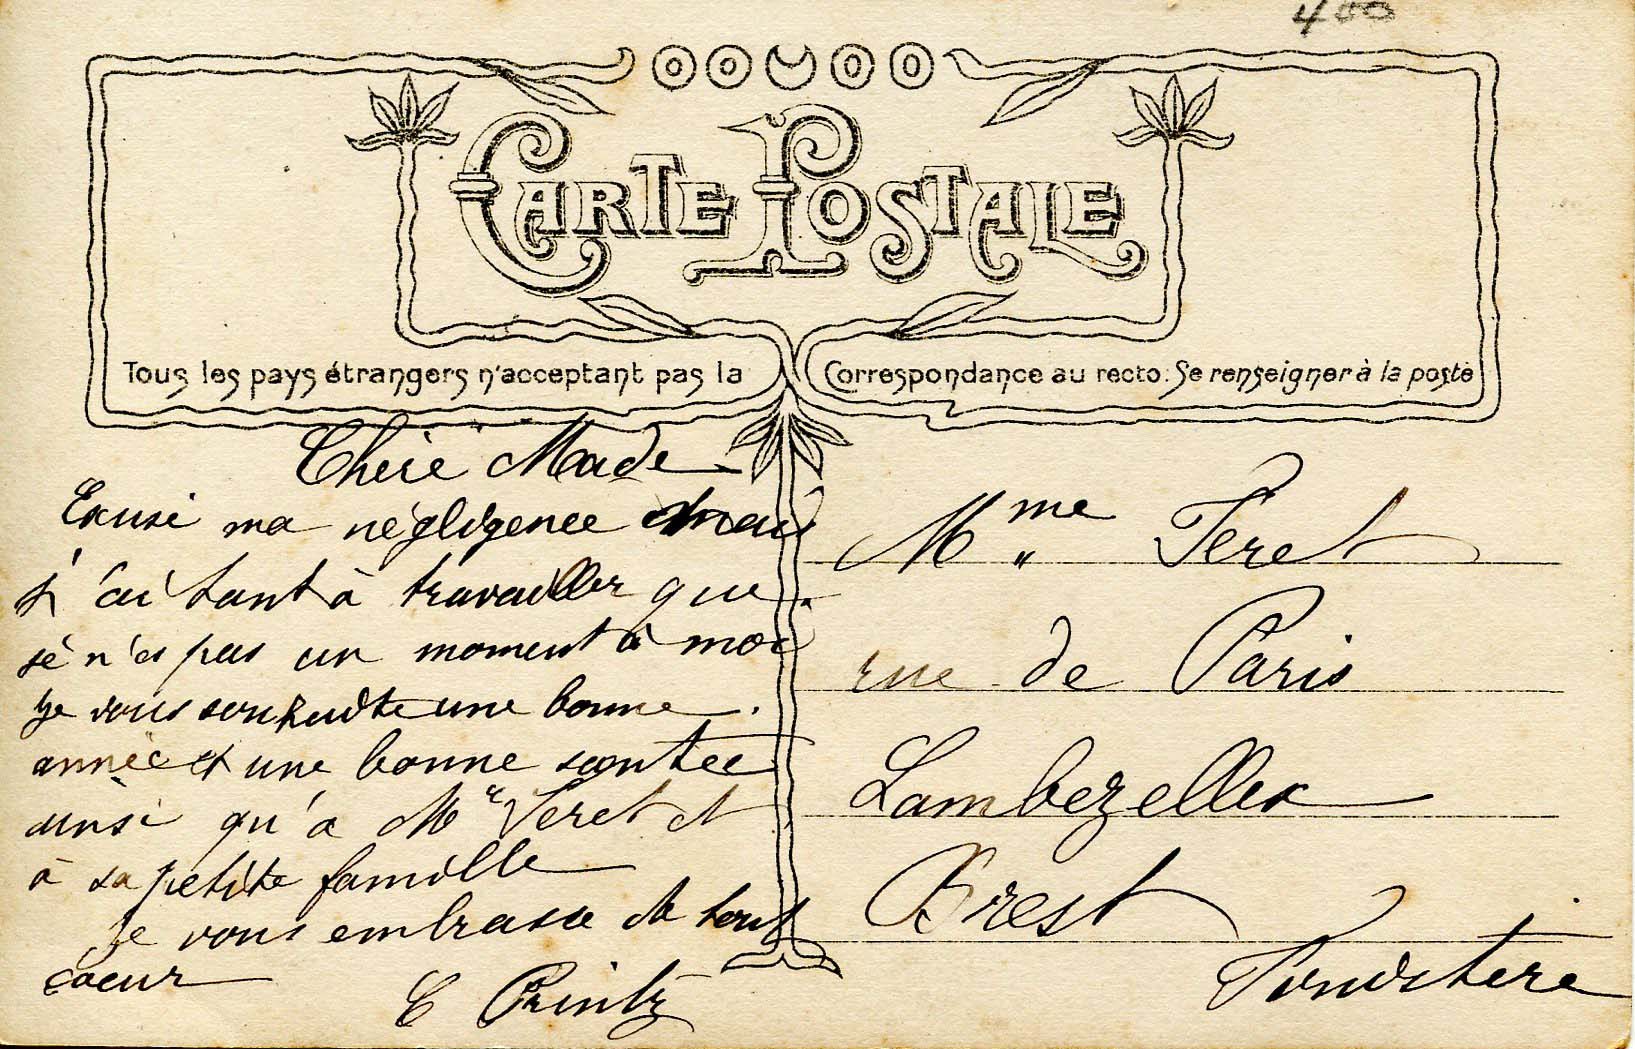 400
CARTE POSTALE
Tous les pays étrangers n'acceptant pas la Correspondance au recto: Se renseigner à la poste
Chère Made
Excusé ma négligence mais
j'ai tant à travailler que
je n'es pas un moment à moi
je vous souhaidte une bonne
année et une bonne santée
ainsi qu'à Mr Feret et
à sa petite famille
Je vous embrasse de tout
coeur
C Printz
Mme Feret
rue de Paris
Lambezellec
Brest
Finistere